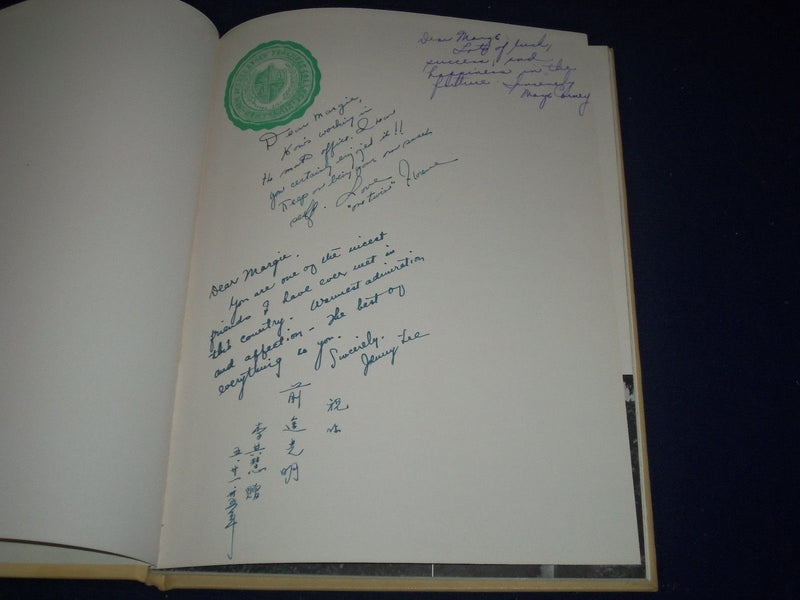 Dear Marge
Lots of luck,
success, and
happiness in the
future. Sincerely
Marge
Dear Margie,
working in
the math office. I know
you certainly enjoyed it!!
Keep on being your own sweet
self. Love
"one twin"
Dear Margie.
You are one of the nicest
friends I have ever met in
this country. Warmest admiration
and affection - The best of
everything to you.
Sincerely.
Jenny Lee
祝你
前途光明
李 慧 贈